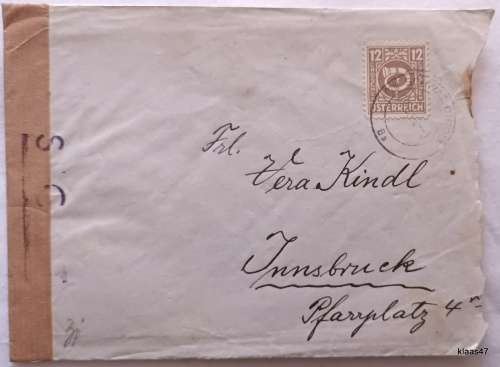 12 12
ÖSTERREICH
Frl.
Vera Kindl
Innsbruck
Pfarrplatz 4
klaas47